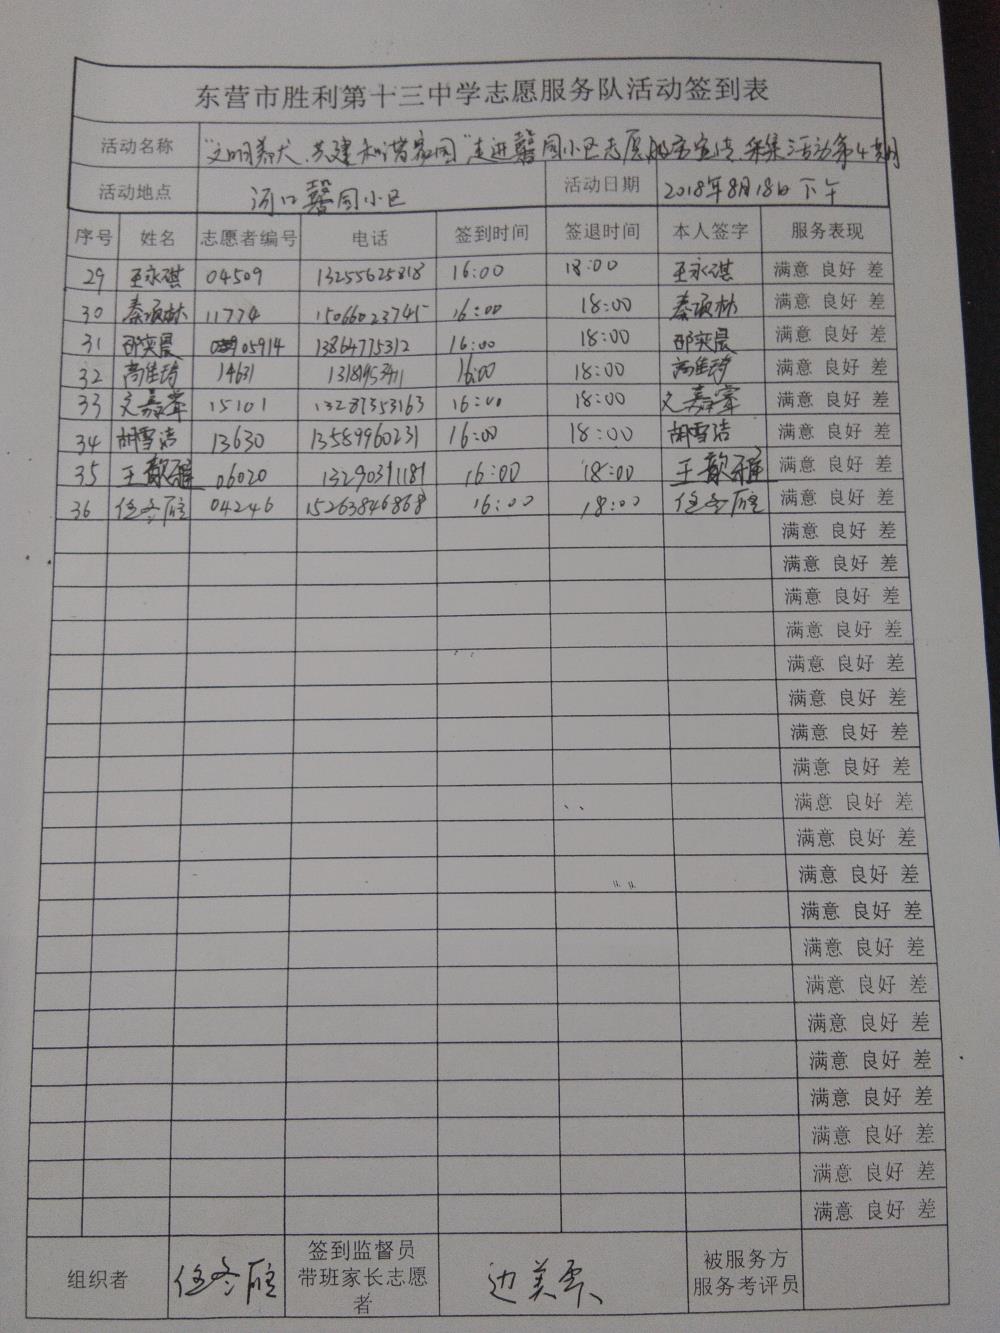 东营市胜利第十三中学志愿服务队活动签到表
活动名称 “文明养犬、共建和谐家园”走进馨园小区志愿服务宣传、采集活动第4期
活动地点 河口馨园小区 活动日期 2018年8月18日下午
序号 姓名 志愿者编号 电话 签到时间 签退时间 本人签字 服务表现
29 王永琪 04509 13255625818 16:00 18:00 王永琪 满意 良好 差
30 秦顶林 11774 15066023745 16:00 18:00 秦顶林 满意 良好 差
31 邵奕晨 05914 13864775312 16:00 18:00 邵奕晨 满意 良好 差
32 高佳琦 14631 16:00 18:00 高佳琦 满意 良好 差
33 文嘉 15101 13287353163 16:00 18:00 文嘉 满意 良好 差
34 胡雪洁 13630 13589960231 16:00 18:00 胡雪洁 满意 良好 差
35 王歆雅 06020 13290311181 16:00 18:00 王歆雅 满意 良好 差
36 任冬 04246 15263846868 16:00 18:00 任冬 满意 良好 差
满意 良好 差
满意 良好 差
满意 良好 差
满意 良好 差
满意 良好 差
满意 良好 差
满意 良好 差
满意 良好 差
满意 良好 差
满意 良好 差
满意 良好 差
满意 良好 差
满意 良好 差
满意 良好 差
满意 良好 差
满意 良好 差
满意 良好 差
满意 良好 差
满意 良好 差
满意 良好 差
组织者 任冬 签到监督员 边美霞 被服务方
带班家长志愿 服务考评员
者